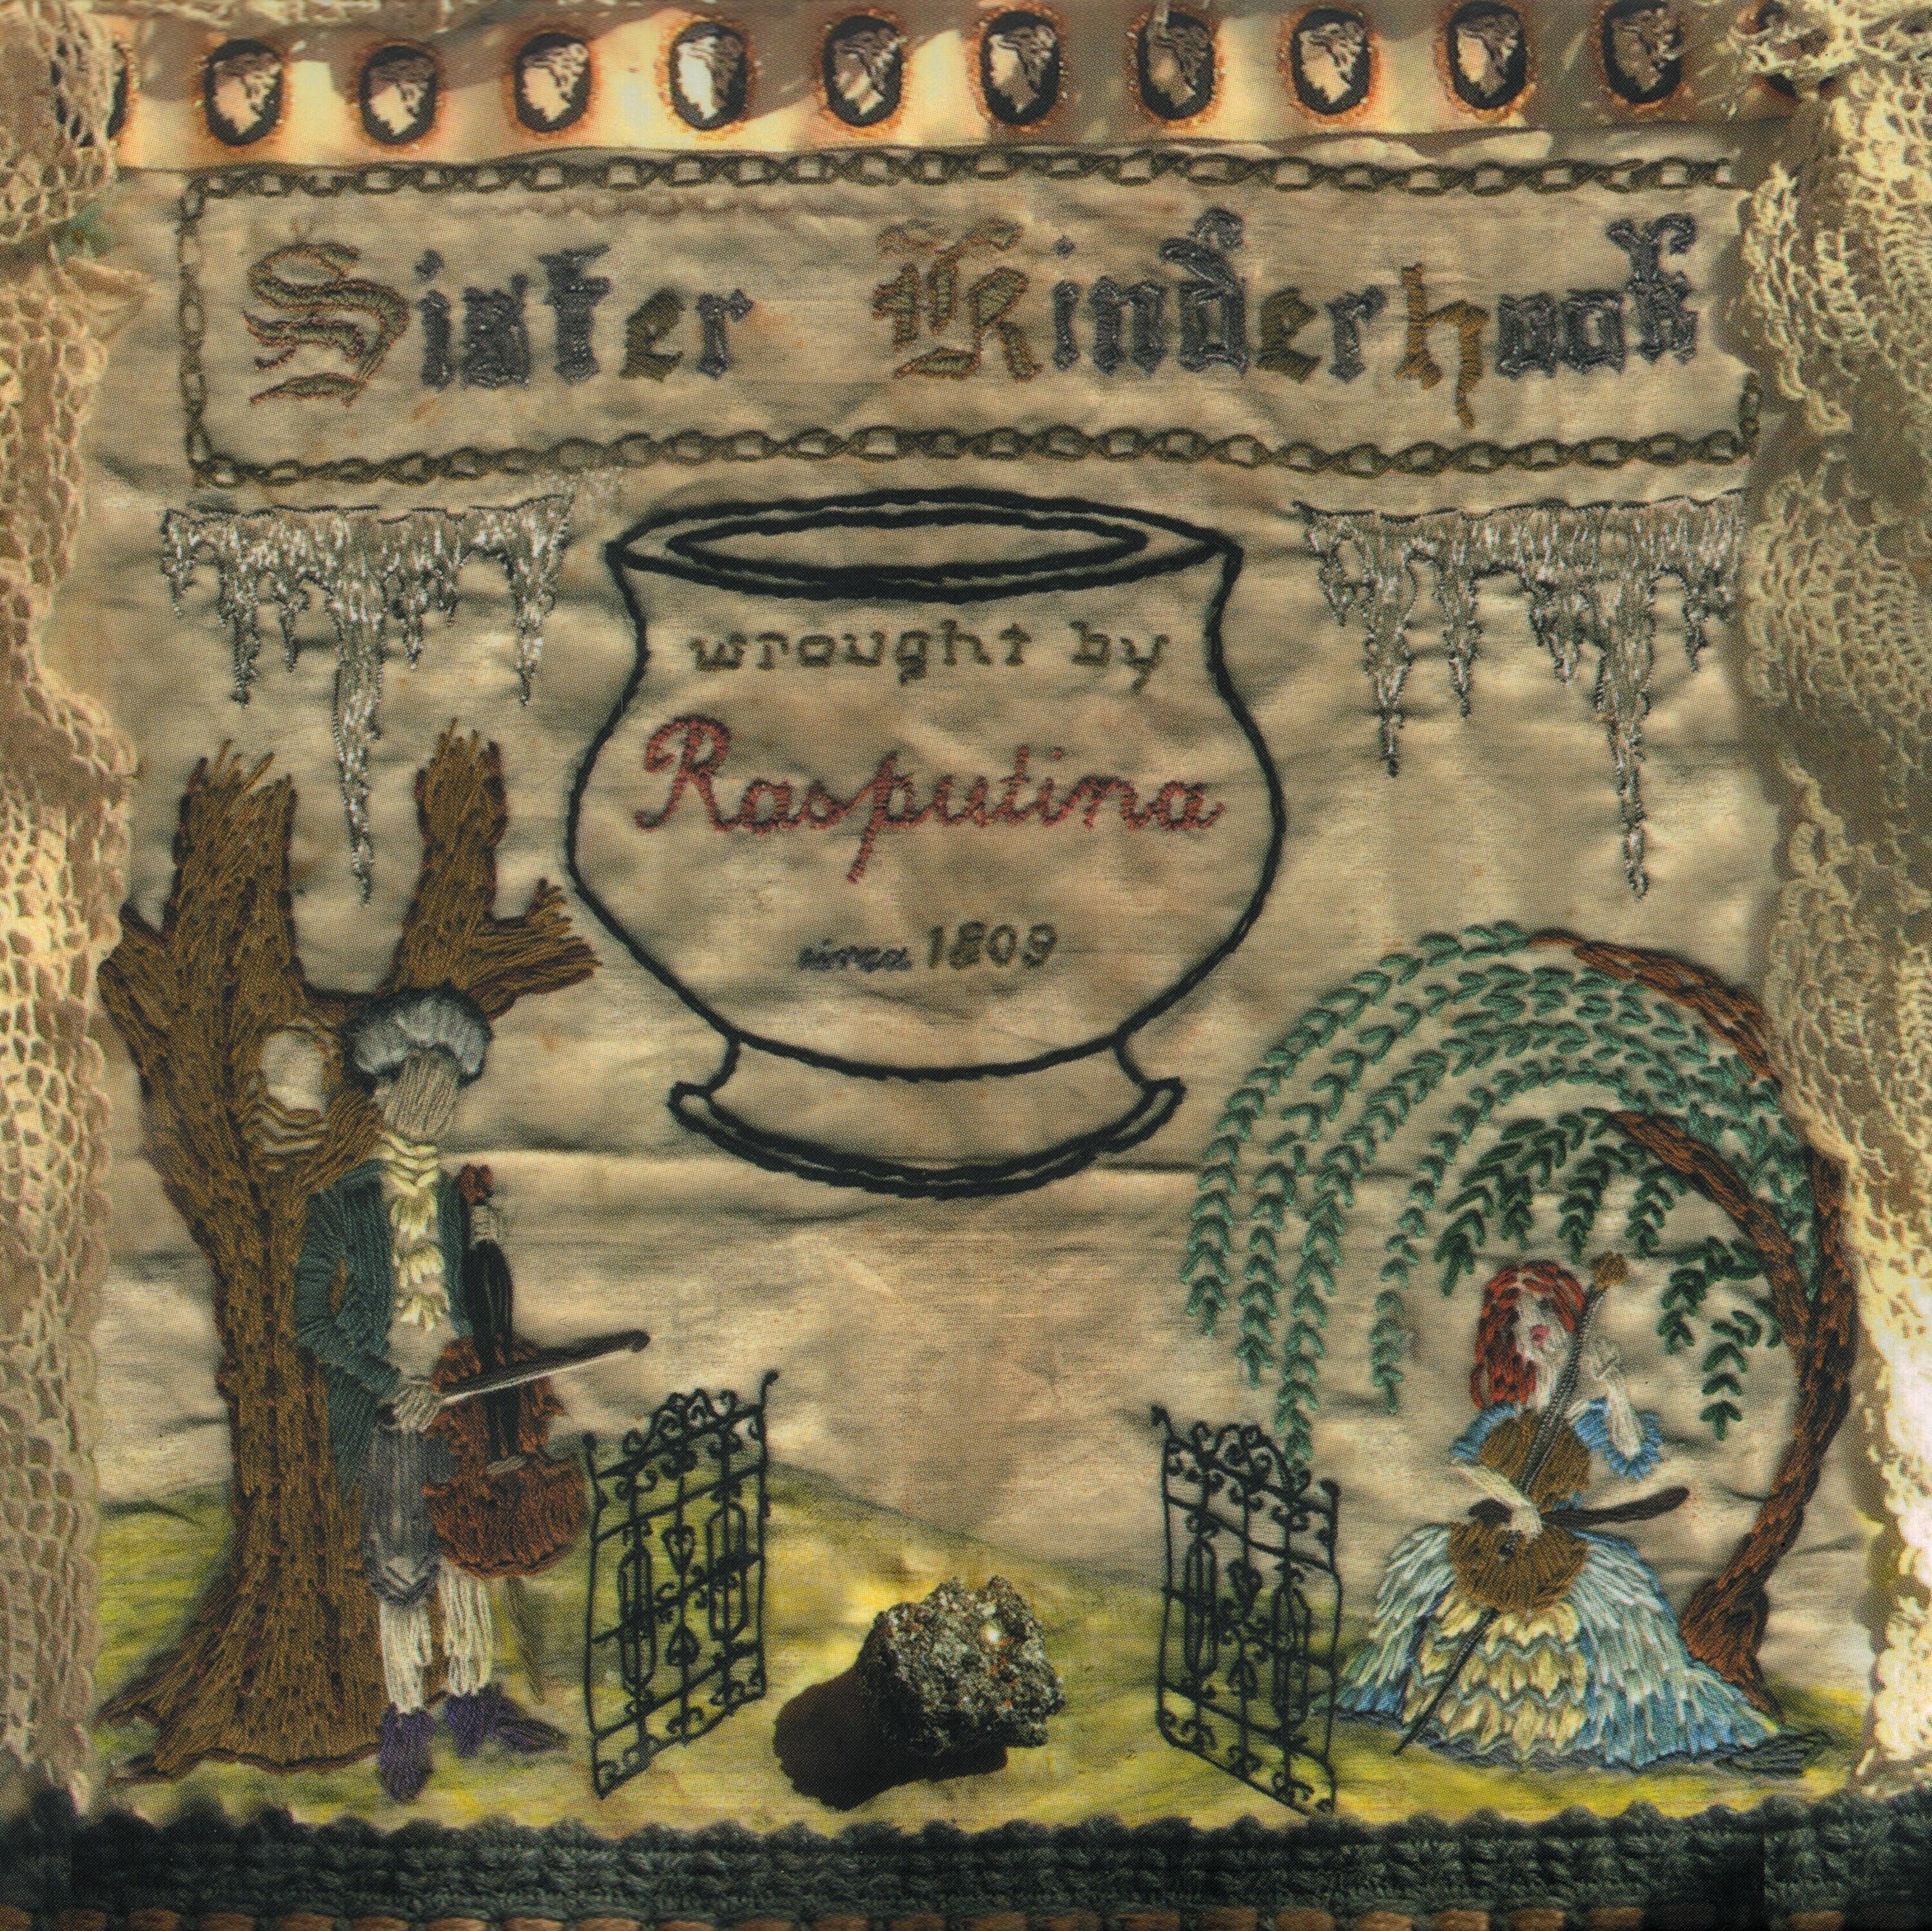 Sister Kinderhook
wrought by
Rasputina
circa 1809